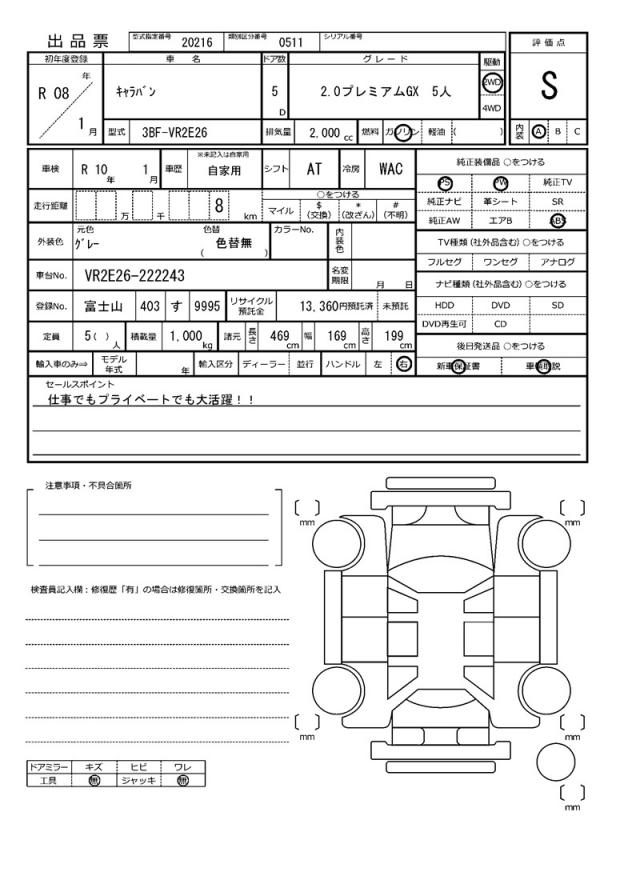 出品票 型式指定番号 20216 類別区分番号 0511 シリアル番号
初年度登録 車名 ドア数 グレード 駆動 評価点
R 08 年 1 月 キャラバン 5 D 2.0プレミアムGX 5人 2WD 4WD S
型式 3BF-VR2E26 排気量 2,000 cc 燃料 ガソリン 軽油 ( ) 内装 A B C
車検 R 10 年 1 月 車歴 ※未記入は自家用 自家用 シフト AT 冷房 WAC
純正装備品 ○をつける
PS PW 純正TV
純正ナビ 革シート SR
純正AW エアB ABS
走行距離 万 千 8 km ○をつける
マイル $(交換) *(改ざん) #(不明)
外装色 元色 グレー 色替 色替無 ( ) カラーNo. 内装色
TV種類 (社外品含む) ○をつける
フルセグ ワンセグ アナログ
車台No. VR2E26-222243 名変期限 月 日
ナビ種類 (社外品含む) ○をつける
HDD DVD SD
DVD再生可 CD
登録No. 富士山 403 す 9995 リサイクル預託金 13,360円預託済 未預託
定員 5( ) 人 積載量 1,000 kg 諸元 長さ 469 cm 幅 169 cm 高さ 199 cm
後日発送品 ○をつける
新車保証書 車輌取説
輸入車のみ⇒ モデル年式 年 輸入区分 ディーラー 並行 ハンドル 左 右
セールスポイント
仕事でもプライベートでも大活躍！！
注意事項・不具合箇所
mm
mm
検査員記入欄：修復歴「有」の場合は修復箇所・交換箇所を記入
mm
mm
ドアミラー キズ ヒビ ワレ
工具 無 ジャッキ 無
mm